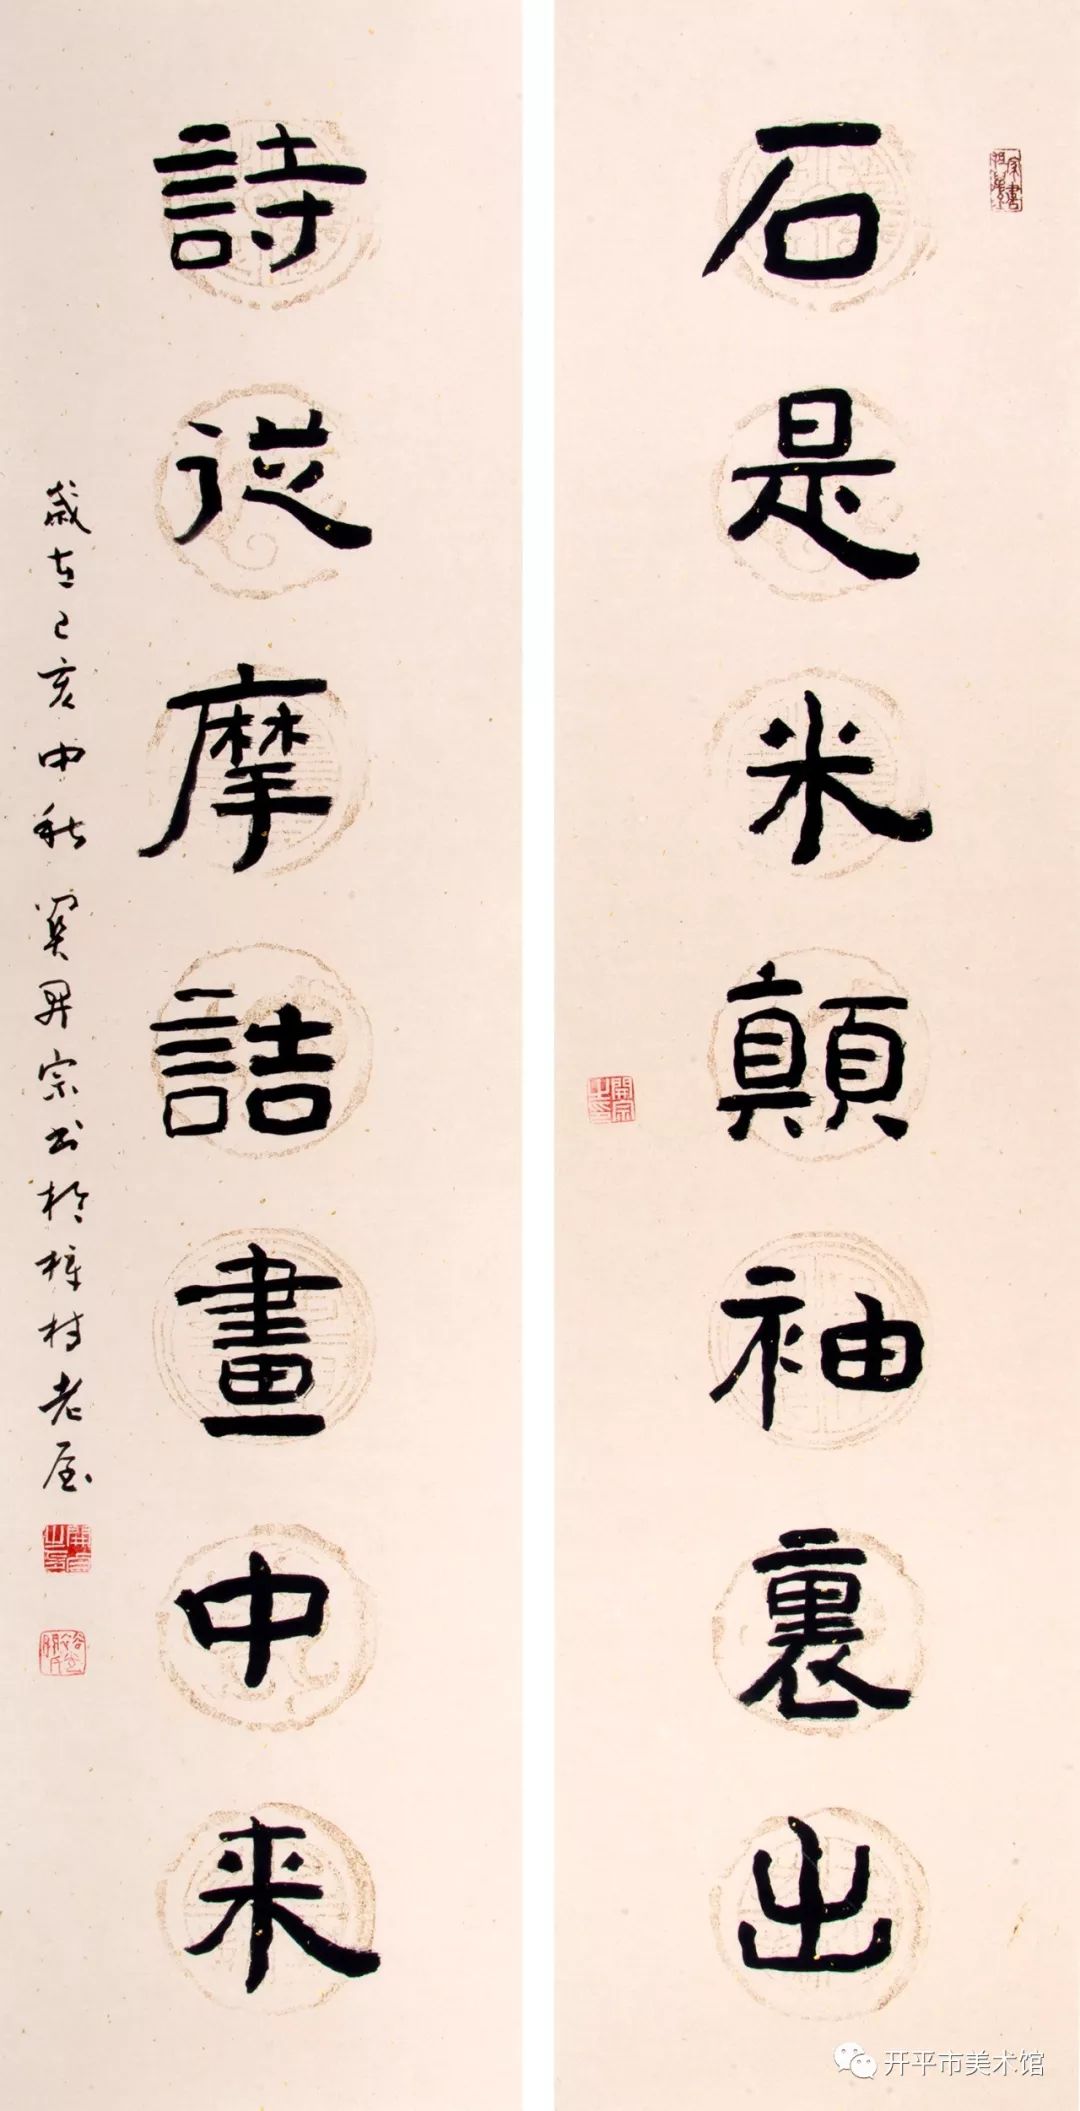 石是米顛袖裏出
詩從摩詰畫中來
歲在己亥中秋關昇宗書於樟村老屋
开平市美术馆